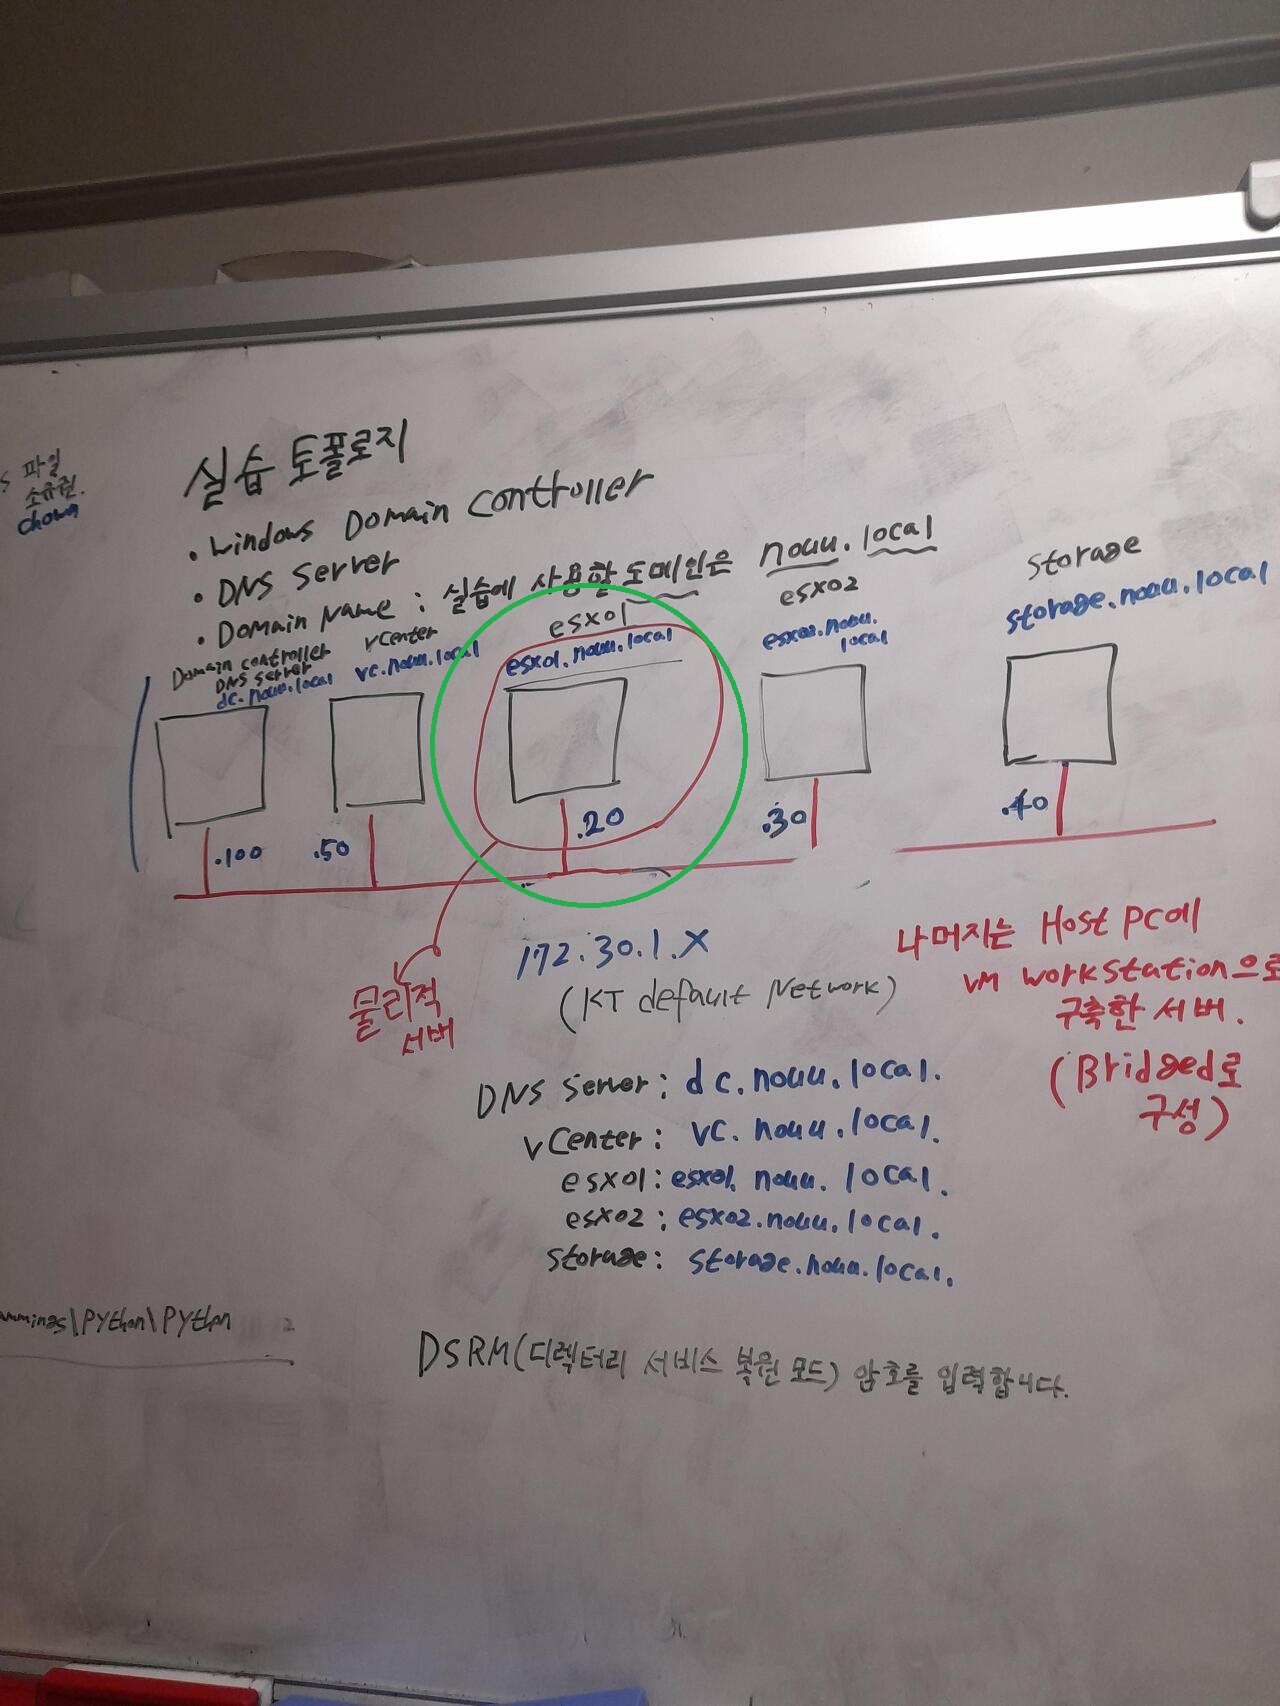 파일
소유권.
chown
실습 토폴로지
• Windows Domain Controller
• DNS Server
• Domain Name : 실습에 사용할 도메인은 nouu.local
Domain controller
DNS server
dc.nouu.local
vCenter
vc.nouu.local
esx01
esx01.nouu.local
esx02
esx02.nouu.
local
storage
storage.nouu.local
.100
.50
.20
.30
.40
물리적
서버
172.30.1.X
(KT default Network)
나머지는 Host PC에
VM Workstation으로
구축한 서버.
(Bridged로
구성)
DNS Server : dc.nouu.local.
vCenter : vc.nouu.local.
esx01 : esx01.nouu.local.
esx02 : esx02.nouu.local.
storage : storage.nouu.local.
ammings\Python\Python
DSRM(디렉터리 서비스 복원 모드) 암호를 입력합니다.